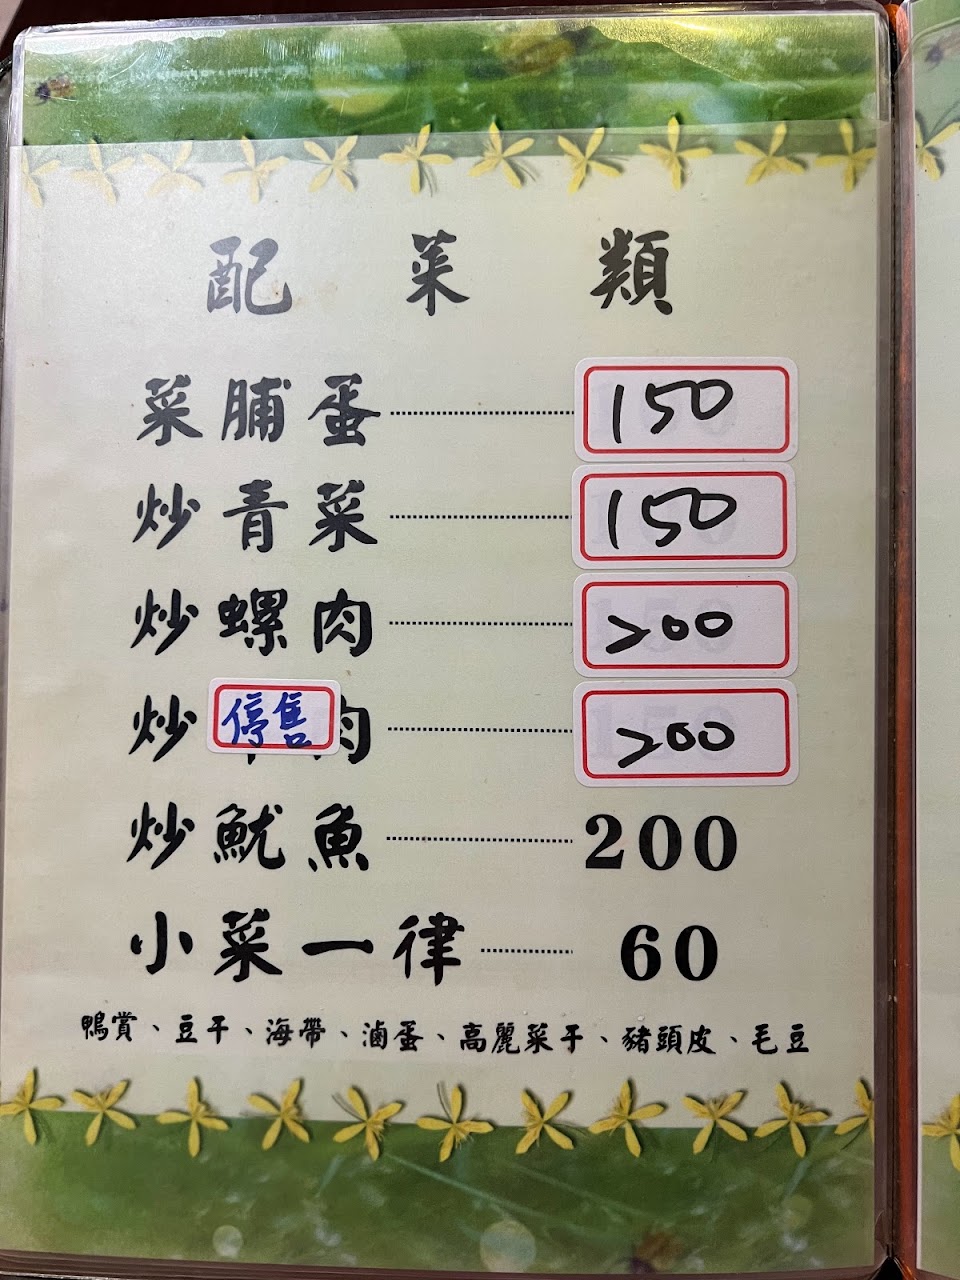 配菜類
菜脯蛋 150
炒青菜 150
炒螺肉 200
炒停售肉 200
炒魷魚 200
小菜一律 60
鴨賞、豆干、海帶、滷蛋、高麗菜干、豬頭皮、毛豆